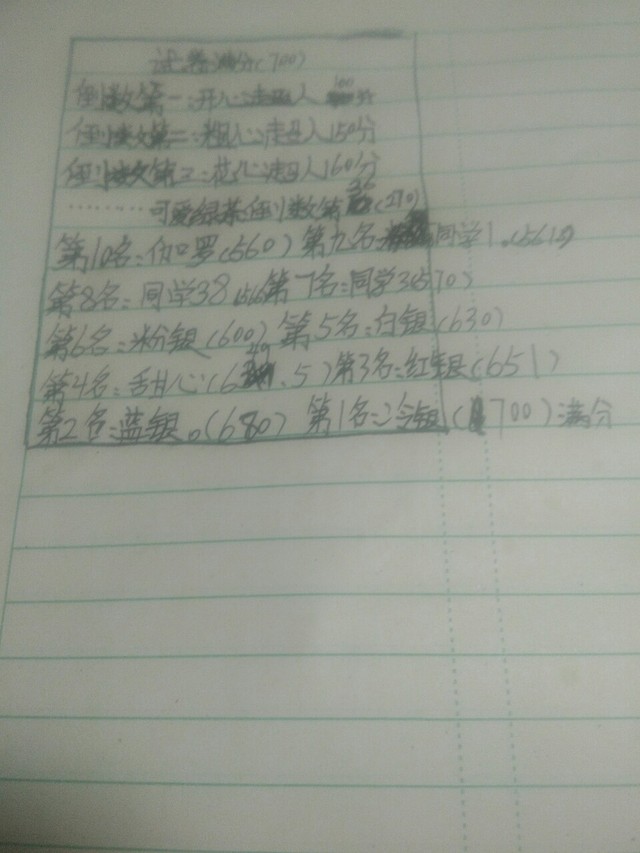 试卷满分(700)
倒数第一:开心超人100分
倒数第二:粗心超人150分
倒数第三:花心超人160分
………可爱绿茶倒数第36(210)
第10名:伽罗(560)第九名:同学1.(561.5)
第8名:同学38(565)第7名:同学3(570)
第6名:粉银(600)第5名:白银(630)
第4名:甜心(649.5)第3名:红银(651)
第2名:蓝银。(680)第1名:冷银(700)满分